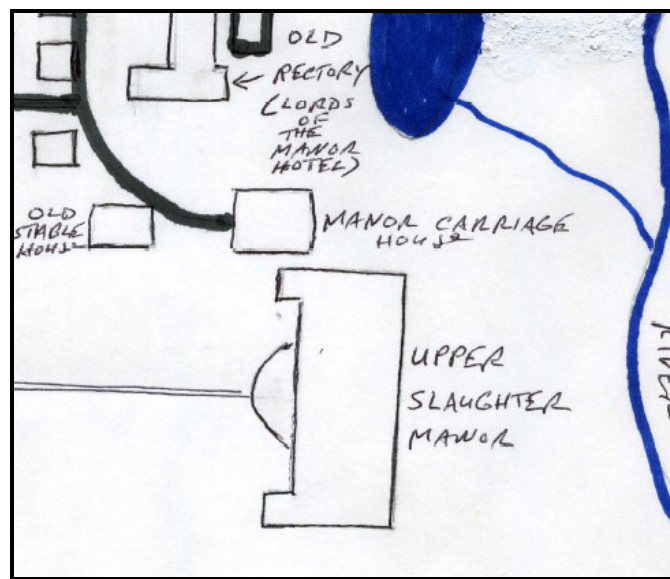 OLD
RECTORY
(LORDS
OF
THE
MANOR
HOTEL)
OLD
STABLE
HOUSE
MANOR CARRIAGE
HOUSE
UPPER
SLAUGHTER
MANOR